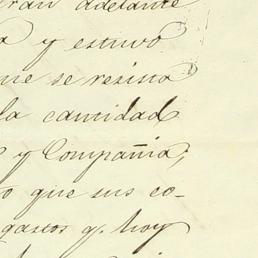 eran adelante
a y estuvo
que se resista
la cantidad
y Compañia,
o que sus co-
gastos q. hoy